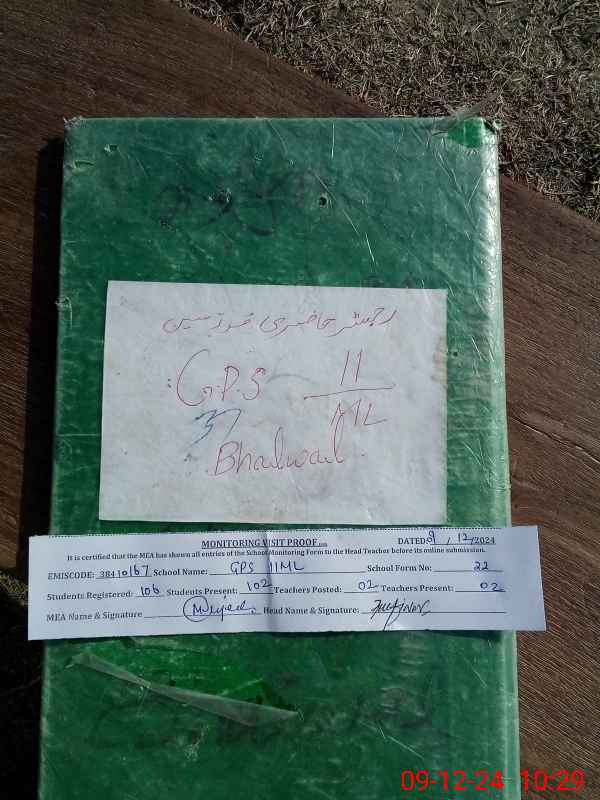 رجسٹر حاضری مدرسین
G.P.S 11/ML
Bhalwal.
MONITORING VISIT PROOF DATED: 9 / 12/2024
It is certified that the MEA has shown all entries of the School Monitoring Form to the Head Teacher before its online submission.
EMISCODE: 38410167 School Name: GPS 11ML School Form No: 22
Students Registered: 106 Students Present: 102 Teachers Posted: 02 Teachers Present: 02
MEA Name & Signature Head Name & Signature:
09-12-24 10:29